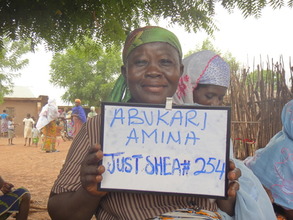 ABUKARI
AMINA
JUST SHEA# 254